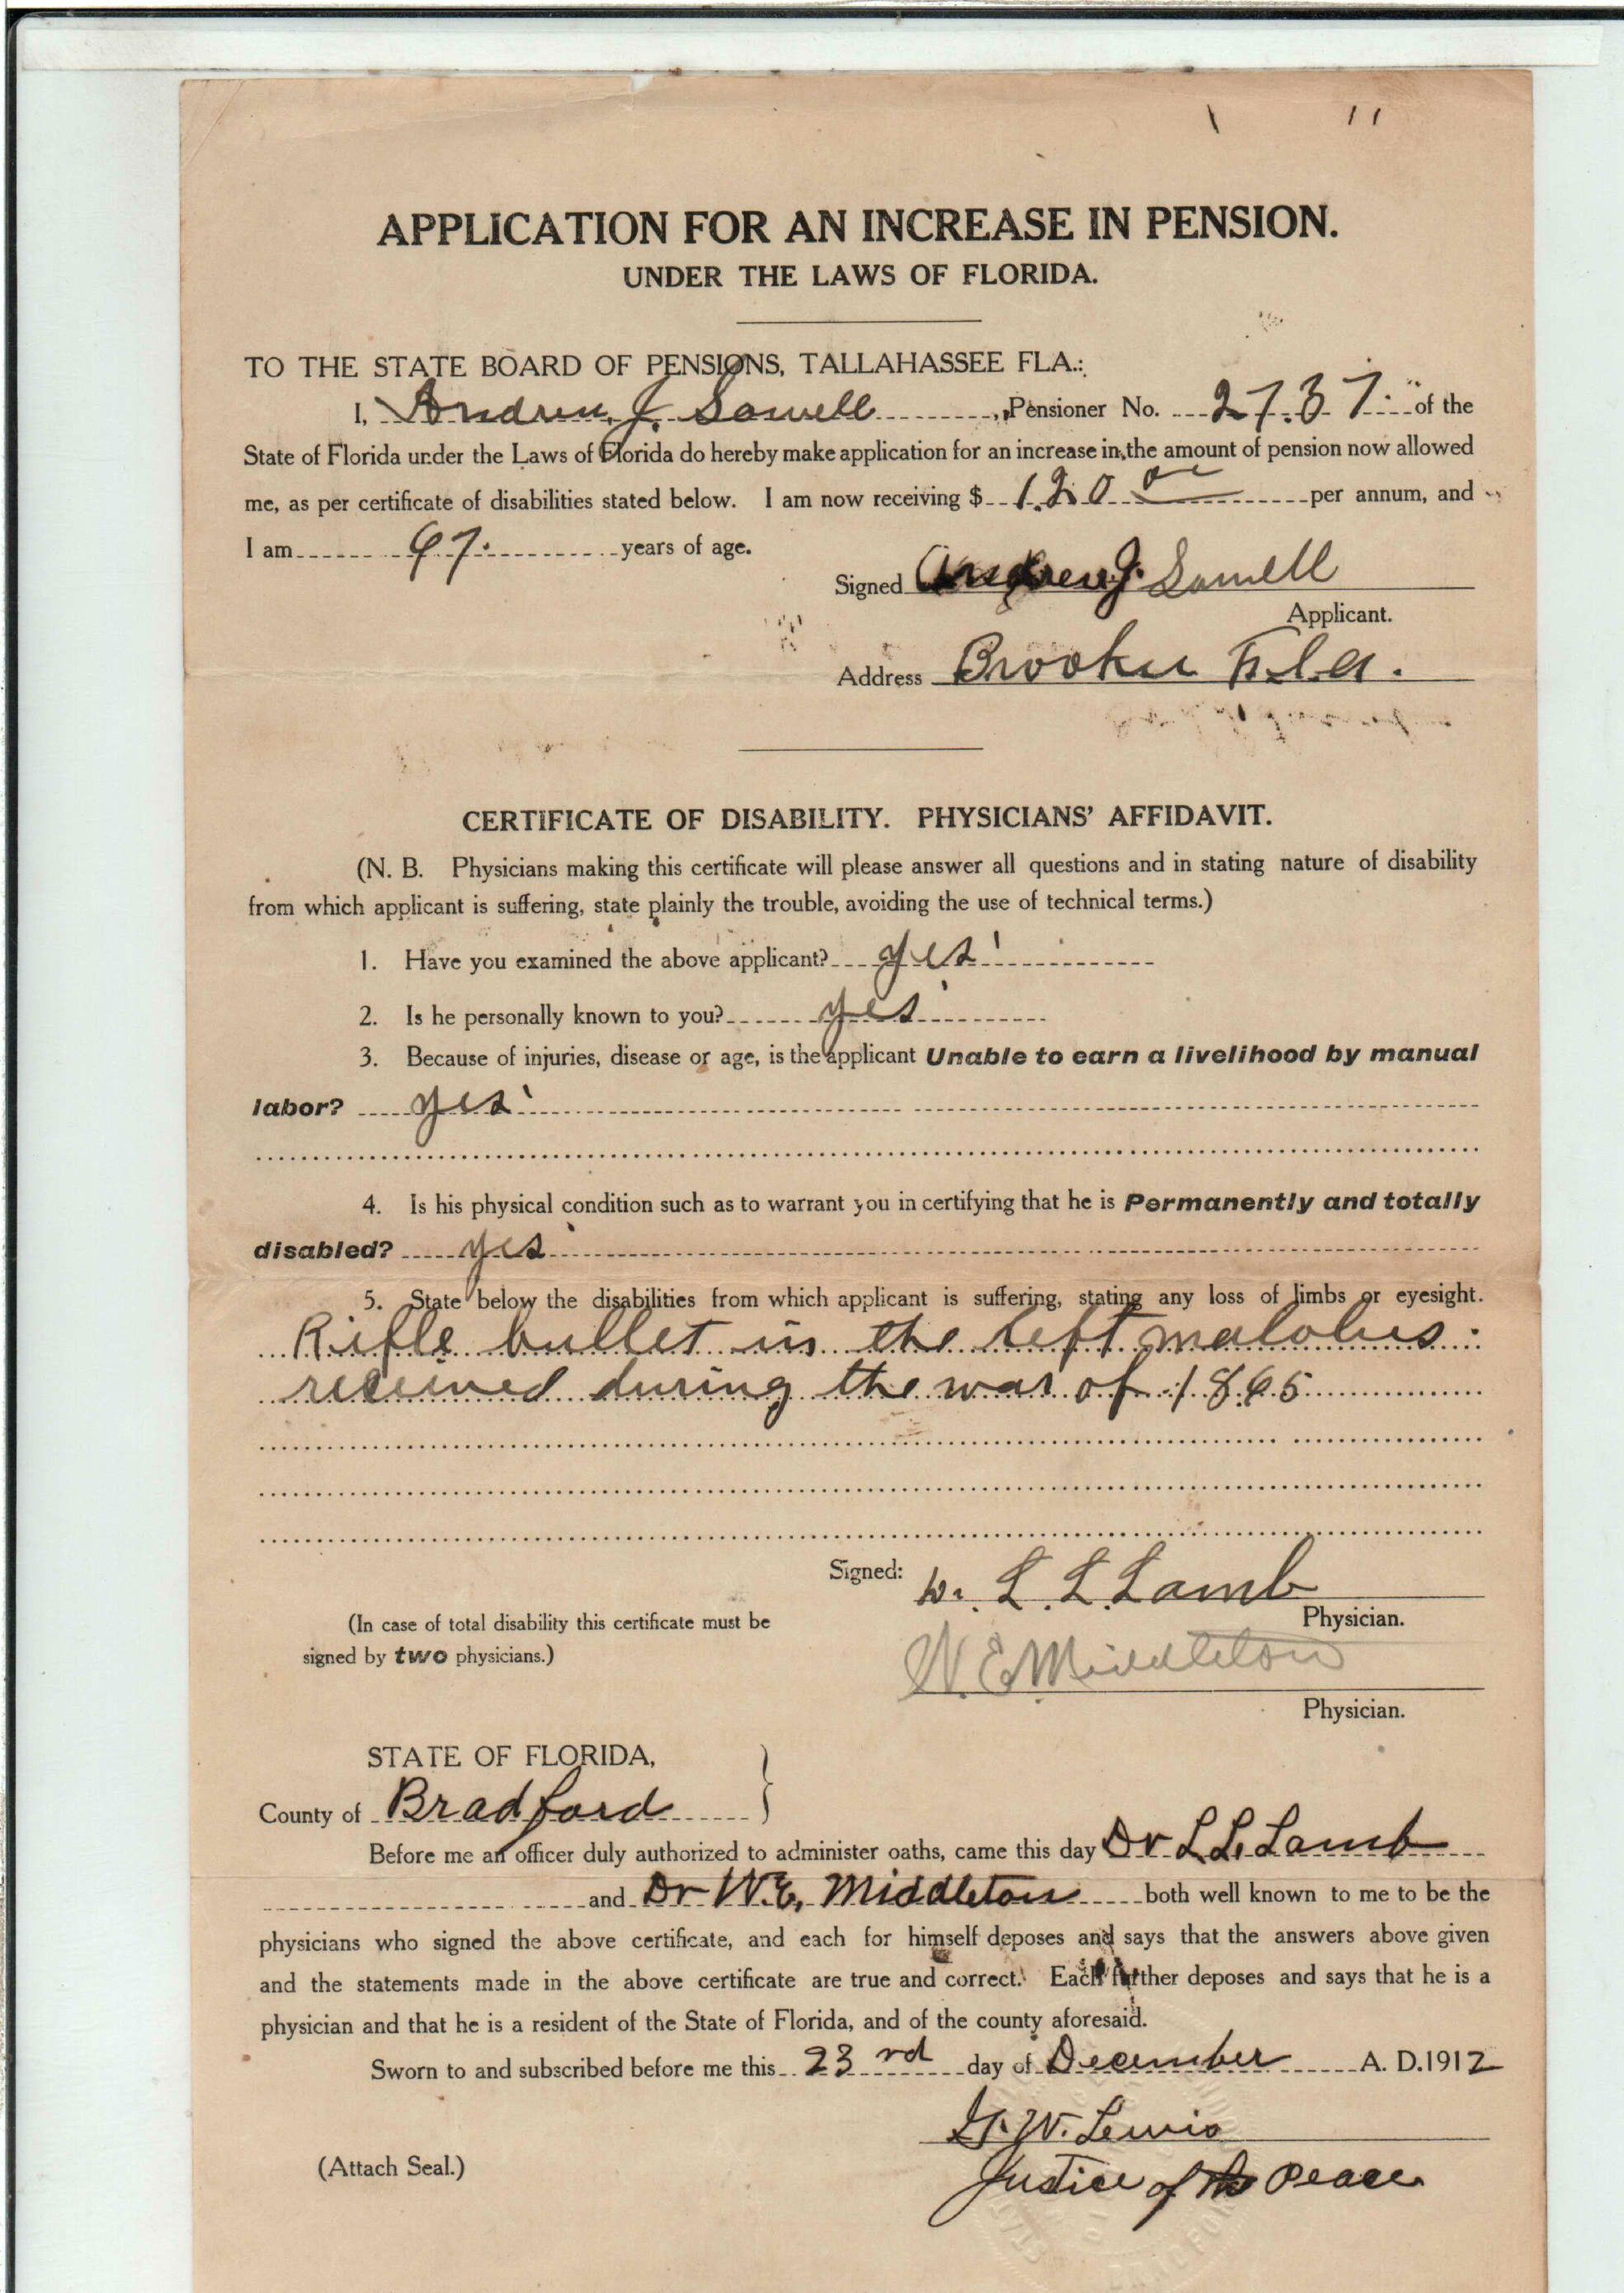 APPLICATION FOR AN INCREASE IN PENSION.
UNDER THE LAWS OF FLORIDA.
TO THE STATE BOARD OF PENSIONS, TALLAHASSEE FLA.:
I, Andrew J. Sowell, Pensioner No. 2737 of the
State of Florida under the Laws of Florida do hereby make application for an increase in the amount of pension now allowed
me, as per certificate of disabilities stated below. I am now receiving $ 120 00 per annum, and
I am 67. years of age.
Signed Andrew J. Sowell
Applicant.
Address Brooker Fla.
CERTIFICATE OF DISABILITY. PHYSICIANS' AFFIDAVIT.
(N. B. Physicians making this certificate will please answer all questions and in stating nature of disability
from which applicant is suffering, state plainly the trouble, avoiding the use of technical terms.)
1. Have you examined the above applicant? yes
2. Is he personally known to you? yes
3. Because of injuries, disease or age, is the applicant Unable to earn a livelihood by manual
labor? yes
4. Is his physical condition such as to warrant you in certifying that he is Permanently and totally
disabled? yes
5. State below the disabilities from which applicant is suffering, stating any loss of limbs or eyesight.
Rifle bullet in the left malolus.
received during the war of 1865
Signed: W. L. L. Lamb
Physician.
(In case of total disability this certificate must be
signed by two physicians.)
W. E. Middleton
Physician.
STATE OF FLORIDA,
County of Bradford
Before me an officer duly authorized to administer oaths, came this day Dr L. L. Lamb
and Dr W. E. Middleton both well known to me to be the
physicians who signed the above certificate, and each for himself deposes and says that the answers above given
and the statements made in the above certificate are true and correct. Each further deposes and says that he is a
physician and that he is a resident of the State of Florida, and of the county aforesaid.
Sworn to and subscribed before me this 23rd day of December A. D. 1912
G. W. Lewis
(Attach Seal.)
Justice of the Peace